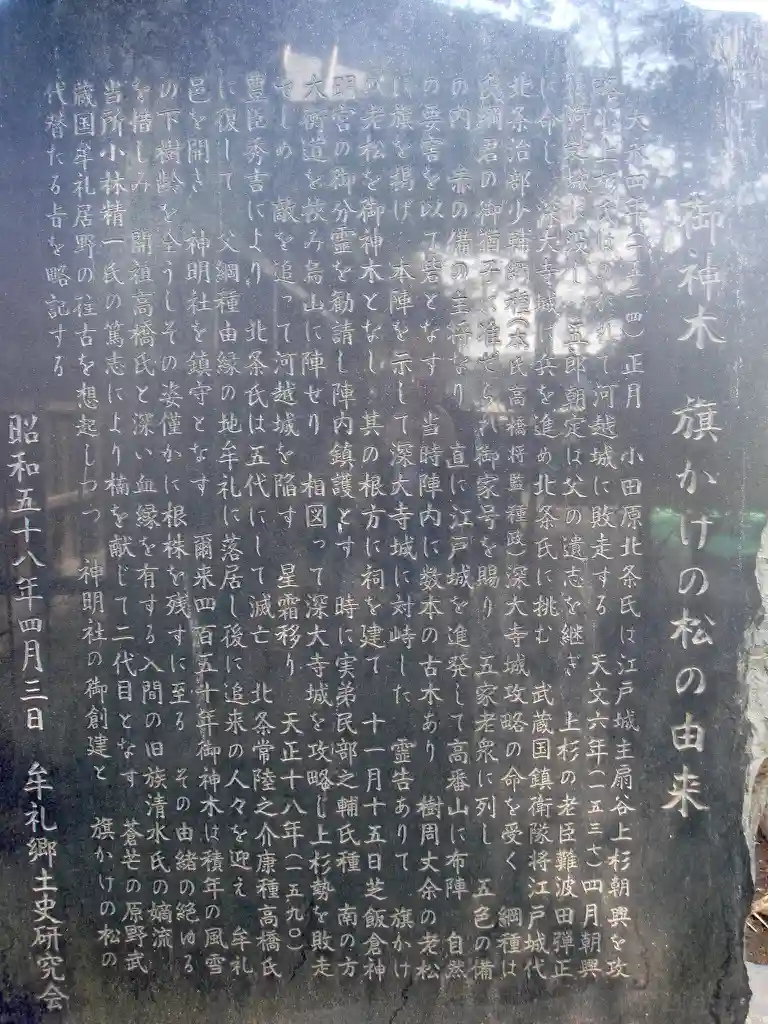 御神木 旗かけの松の由来
大永四年(一五二四)正月 小田原北条氏は江戸城主扇谷上杉朝興を攻
略し上杉氏はのがれて河越城に敗走する 天文六年(一五三七)四月朝興
河越城に没し 五郎朝定は父の遺志を継ぎ 上杉の老臣難波田弾正
に命じ 深大寺城に兵を進め北条氏に挑む 武蔵国鎮衛隊将江戸城代
北条治部少輔綱種(本氏高橋将監種政)深大寺城攻略の命を受く 綱種は
氏綱君の御猶子に准ぜられ御家号を賜り 五家老衆に列し 五色の備
の内 赤の備の主将なり 直に江戸城を進発して高番山に布陣 自然
の要害を以て砦となす 当時陣内に数本の古木あり 樹周丈余の老松
に旗を揚げ 本陣を示して深大寺城に対峙した 霊告ありて 旗かけ
の老松を御神木となし 其の根方に祠を建て 十一月十五日芝飯倉神
明宮の御分霊を勧請し陣内鎮護とす 時に実弟民部之輔氏種 南の方
大街道を挟み烏山に陣せり 相図って深大寺城を攻略し上杉勢を敗走
せしめ 敵を追って河越城を陥す 星霜移り 天正十八年(一五九〇)
豊臣秀吉により 北条氏は五代にして滅亡 北条常陸之介康種高橋氏
に復して 父綱種由縁の地牟礼に落居し後に追来の人々を迎え 牟礼
邑を開き 神明社を鎮守となす 爾来四百五十年御神木は積年の風雪
の下樹齢を全うしその姿僅かに根株を残すに至る その由緒の絶ゆる
を惜しみ 開祖高橋氏と深い血縁を有する入間の旧族清水氏の嫡流
当所小林精一氏の篤志により楠を献じて二代目となす 蒼芒の原野武
蔵国牟礼居野の往古を想起しつつ 神明社の御創建と 旗かけの松の
代替たる旨を略記する
昭和五十八年四月三日 牟礼郷土史研究会